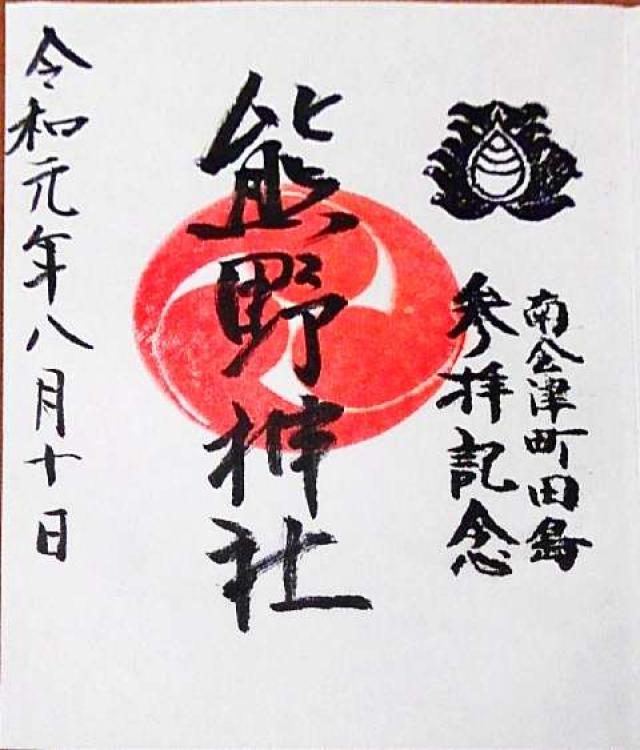 南会津町田島
参拝記念
熊野神社
令和元年八月十日